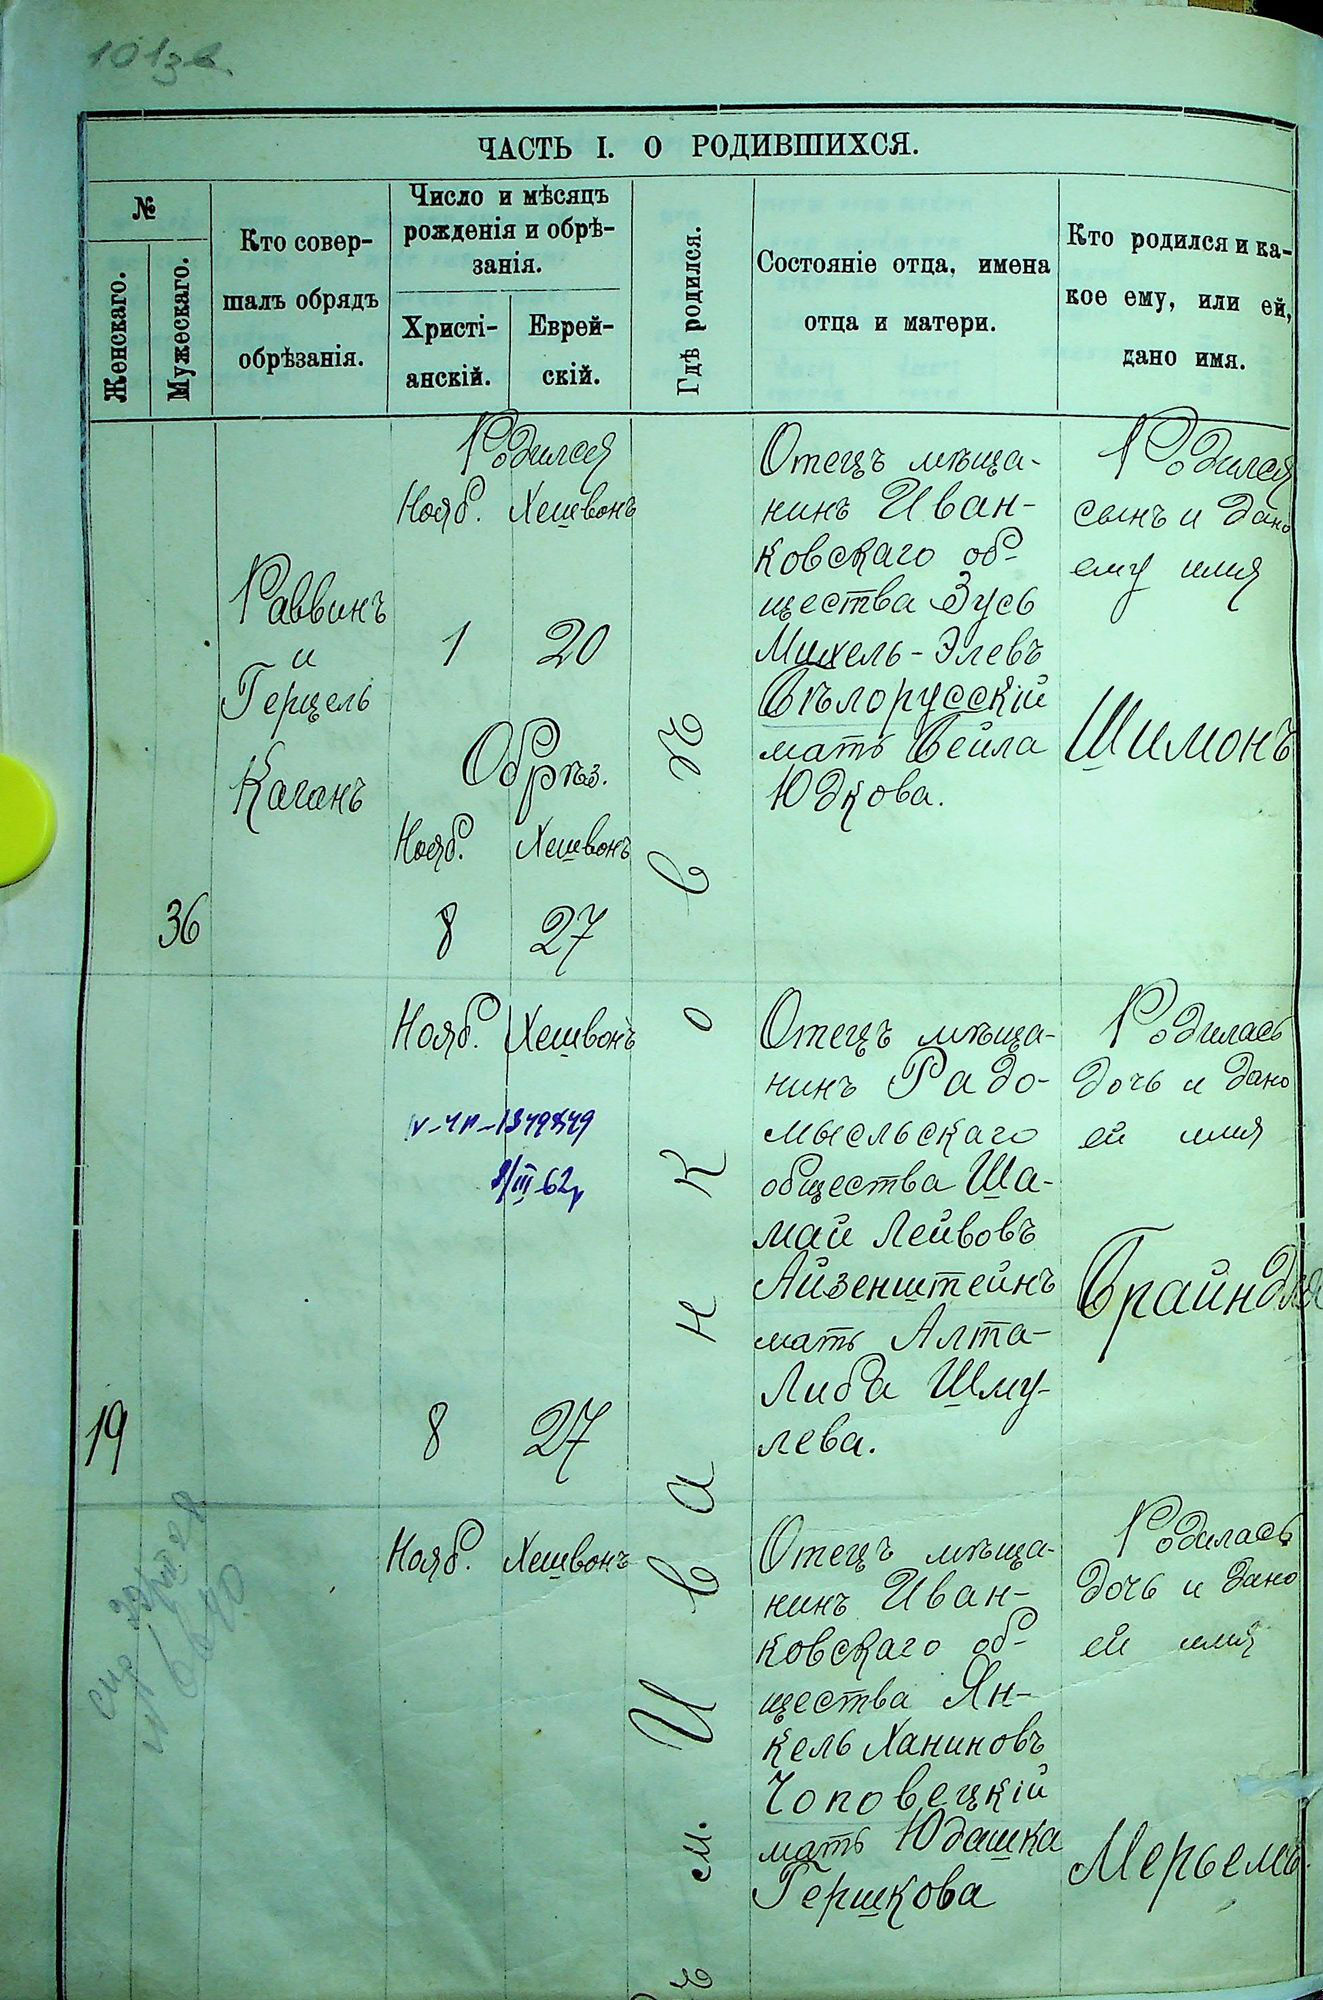 101зв
ЧАСТЬ I. О РОДИВШИХСЯ.
№
Женскаго.
Мужескаго.
Кто совер-
шалъ обрядъ
обрѣзанія.
Число и мѣсяцъ
рожденія и обрѣ-
занія.
Христі-
анскій.
Еврей-
скій.
Гдѣ родился.
Состояніе отца, имена
отца и матери.
Кто родился и ка-
кое ему, или ей,
дано имя.
36
Раввинъ
и
Герцель
Каганъ
Родился
Нояб. Хешвонъ
1 20
Обрѣз.
Нояб. Хешвонъ
8 27
Отецъ мѣща-
нинъ Иван-
ковскаго об-
щества Зусь
Михель-Элевъ
Бѣлорусскій
мать Бейла
Юдкова.
Родился
сынъ и дано
ему имя
Шимонъ
19
Нояб. Хешвонъ
IV-ЧП-1349849
8/III 62г
8 27
Отецъ мѣща-
нинъ Радо-
мысльскаго
общества Ша-
май Лейвовъ
Айзенштейнъ
мать Алта-
Либа Шму-
лева.
Родилась
дочь и дано
ей имя
Брайндля
Нояб. Хешвонъ
Отецъ мѣща-
нинъ Иван-
ковскаго об-
щества Ян-
кель Ханиновъ
Чоповецкій
мать Юдашка
Гершкова
Родилась
дочь и дано
ей имя
Мерьемъ.
Въ м. Иванковѣ